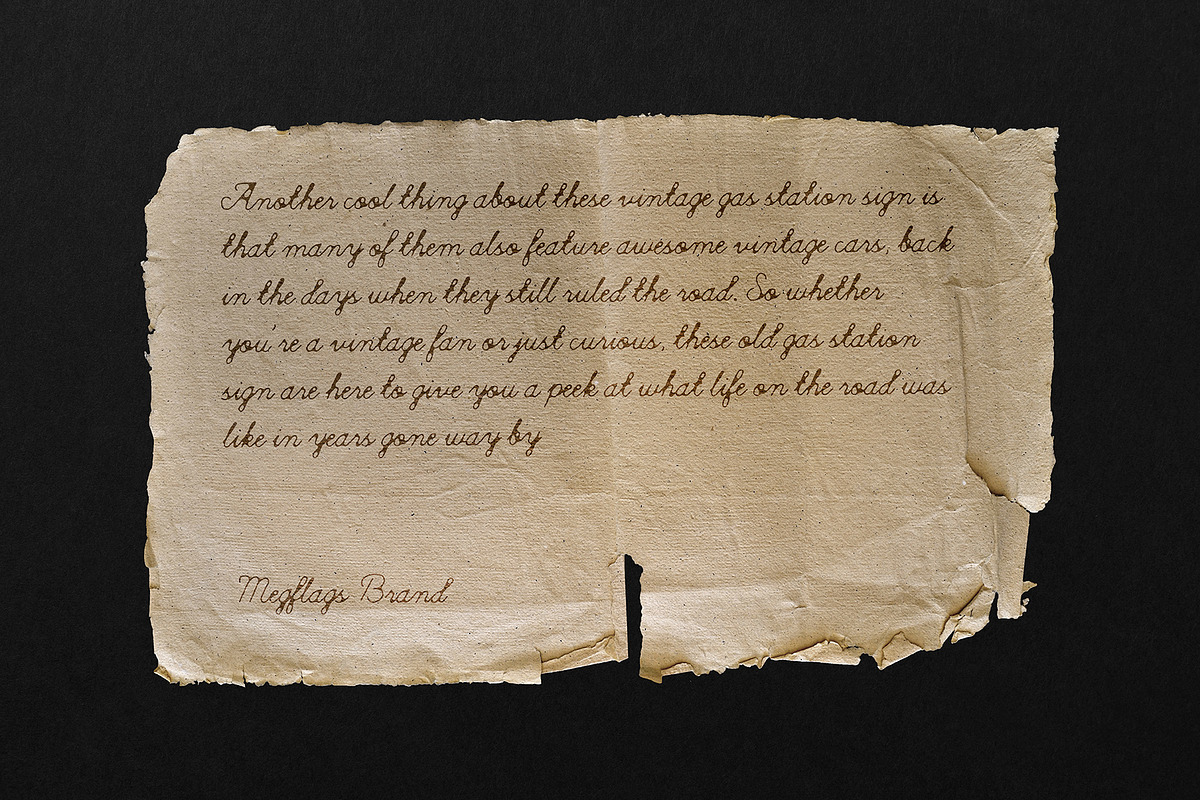 Another cool thing about these vintage gas station sign is
that many of them also feature awesome vintage cars, back
in the days when they still ruled the road. So whether
you're a vintage fan or just curious, these old gas station
sign are here to give you a peek at what life on the road was
like in years gone way by
Megflags Brand